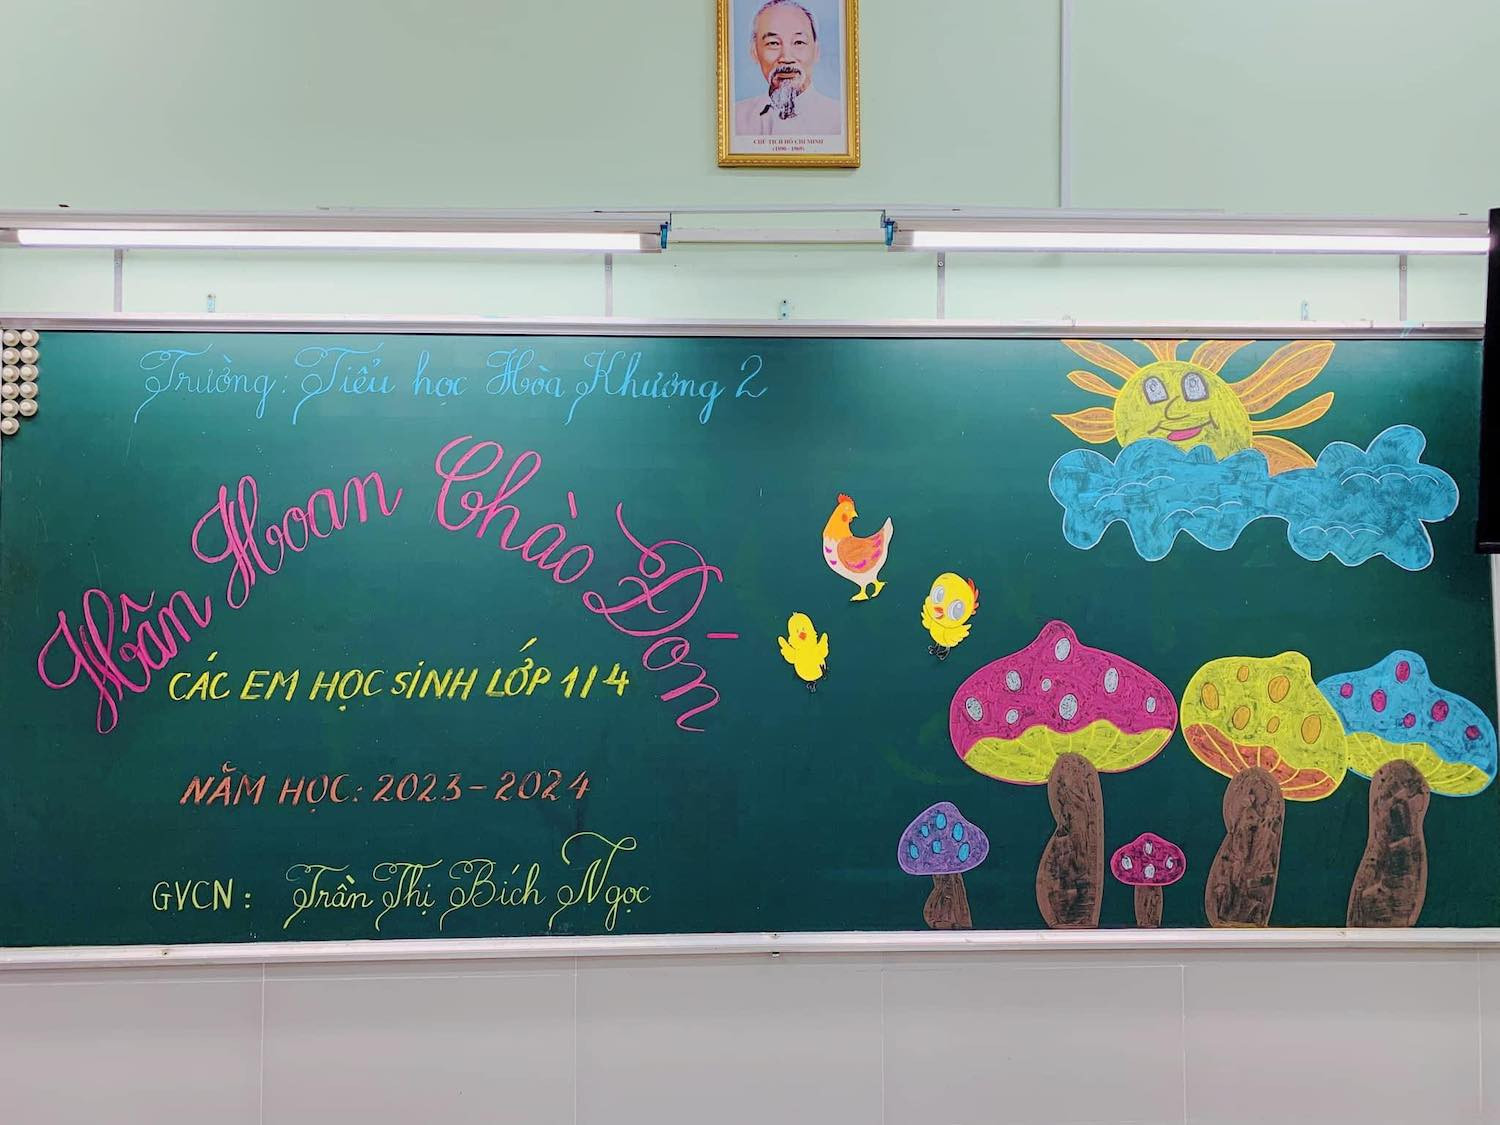 CHỦ TỊCH HỒ CHÍ MINH
(1890 - 1969)
Trường: Tiểu học Hòa Khương 2
Hân Hoan Chào Đón
CÁC EM HỌC SINH LỚP 1/4
NĂM HỌC: 2023-2024
GVCN: Trần Thị Bích Ngọc